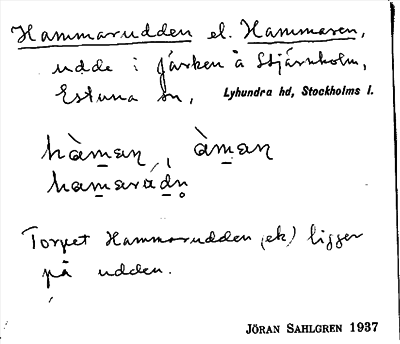 Hammarudden el. Hammaren,
udde i Järken å Stjärnholm,
Estuna sn, Lyhundra hd, Stockholms l.
hàman, àman
hamarúdn̥
Torpet Hammarudden (ek) ligger
på udden.
JÖRAN SAHLGREN 1937